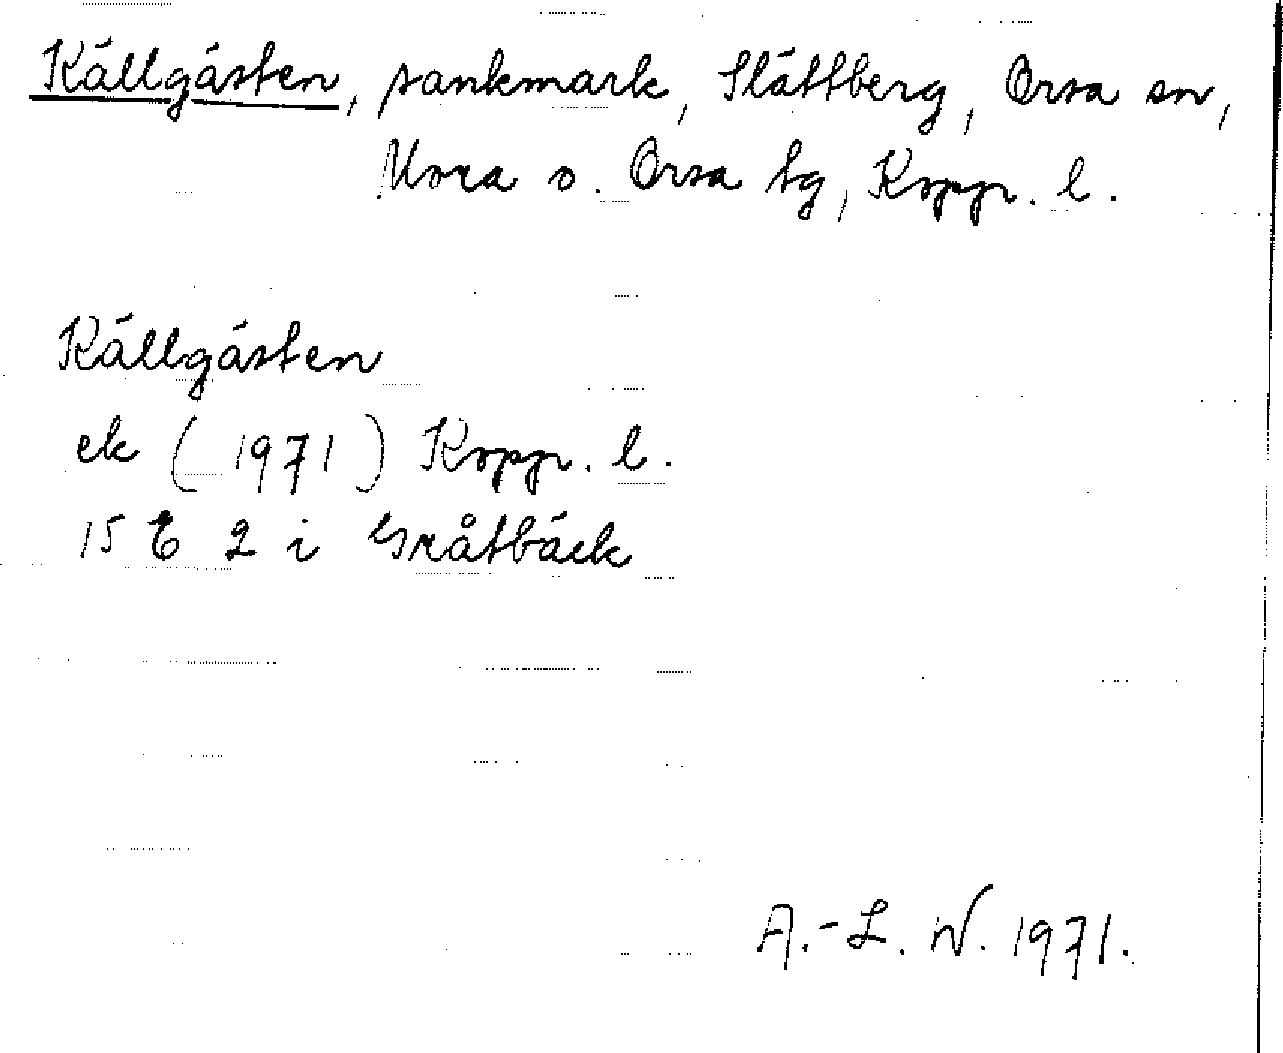 Källgåsten, sankmark, Slättberg, Orsa sn,
Mora o. Orsa tg, Kopp. l.
Källgåsten
ek (1971) Kopp. l.
15 E 2 i Gråtbäck
A.-L. W. 1971.